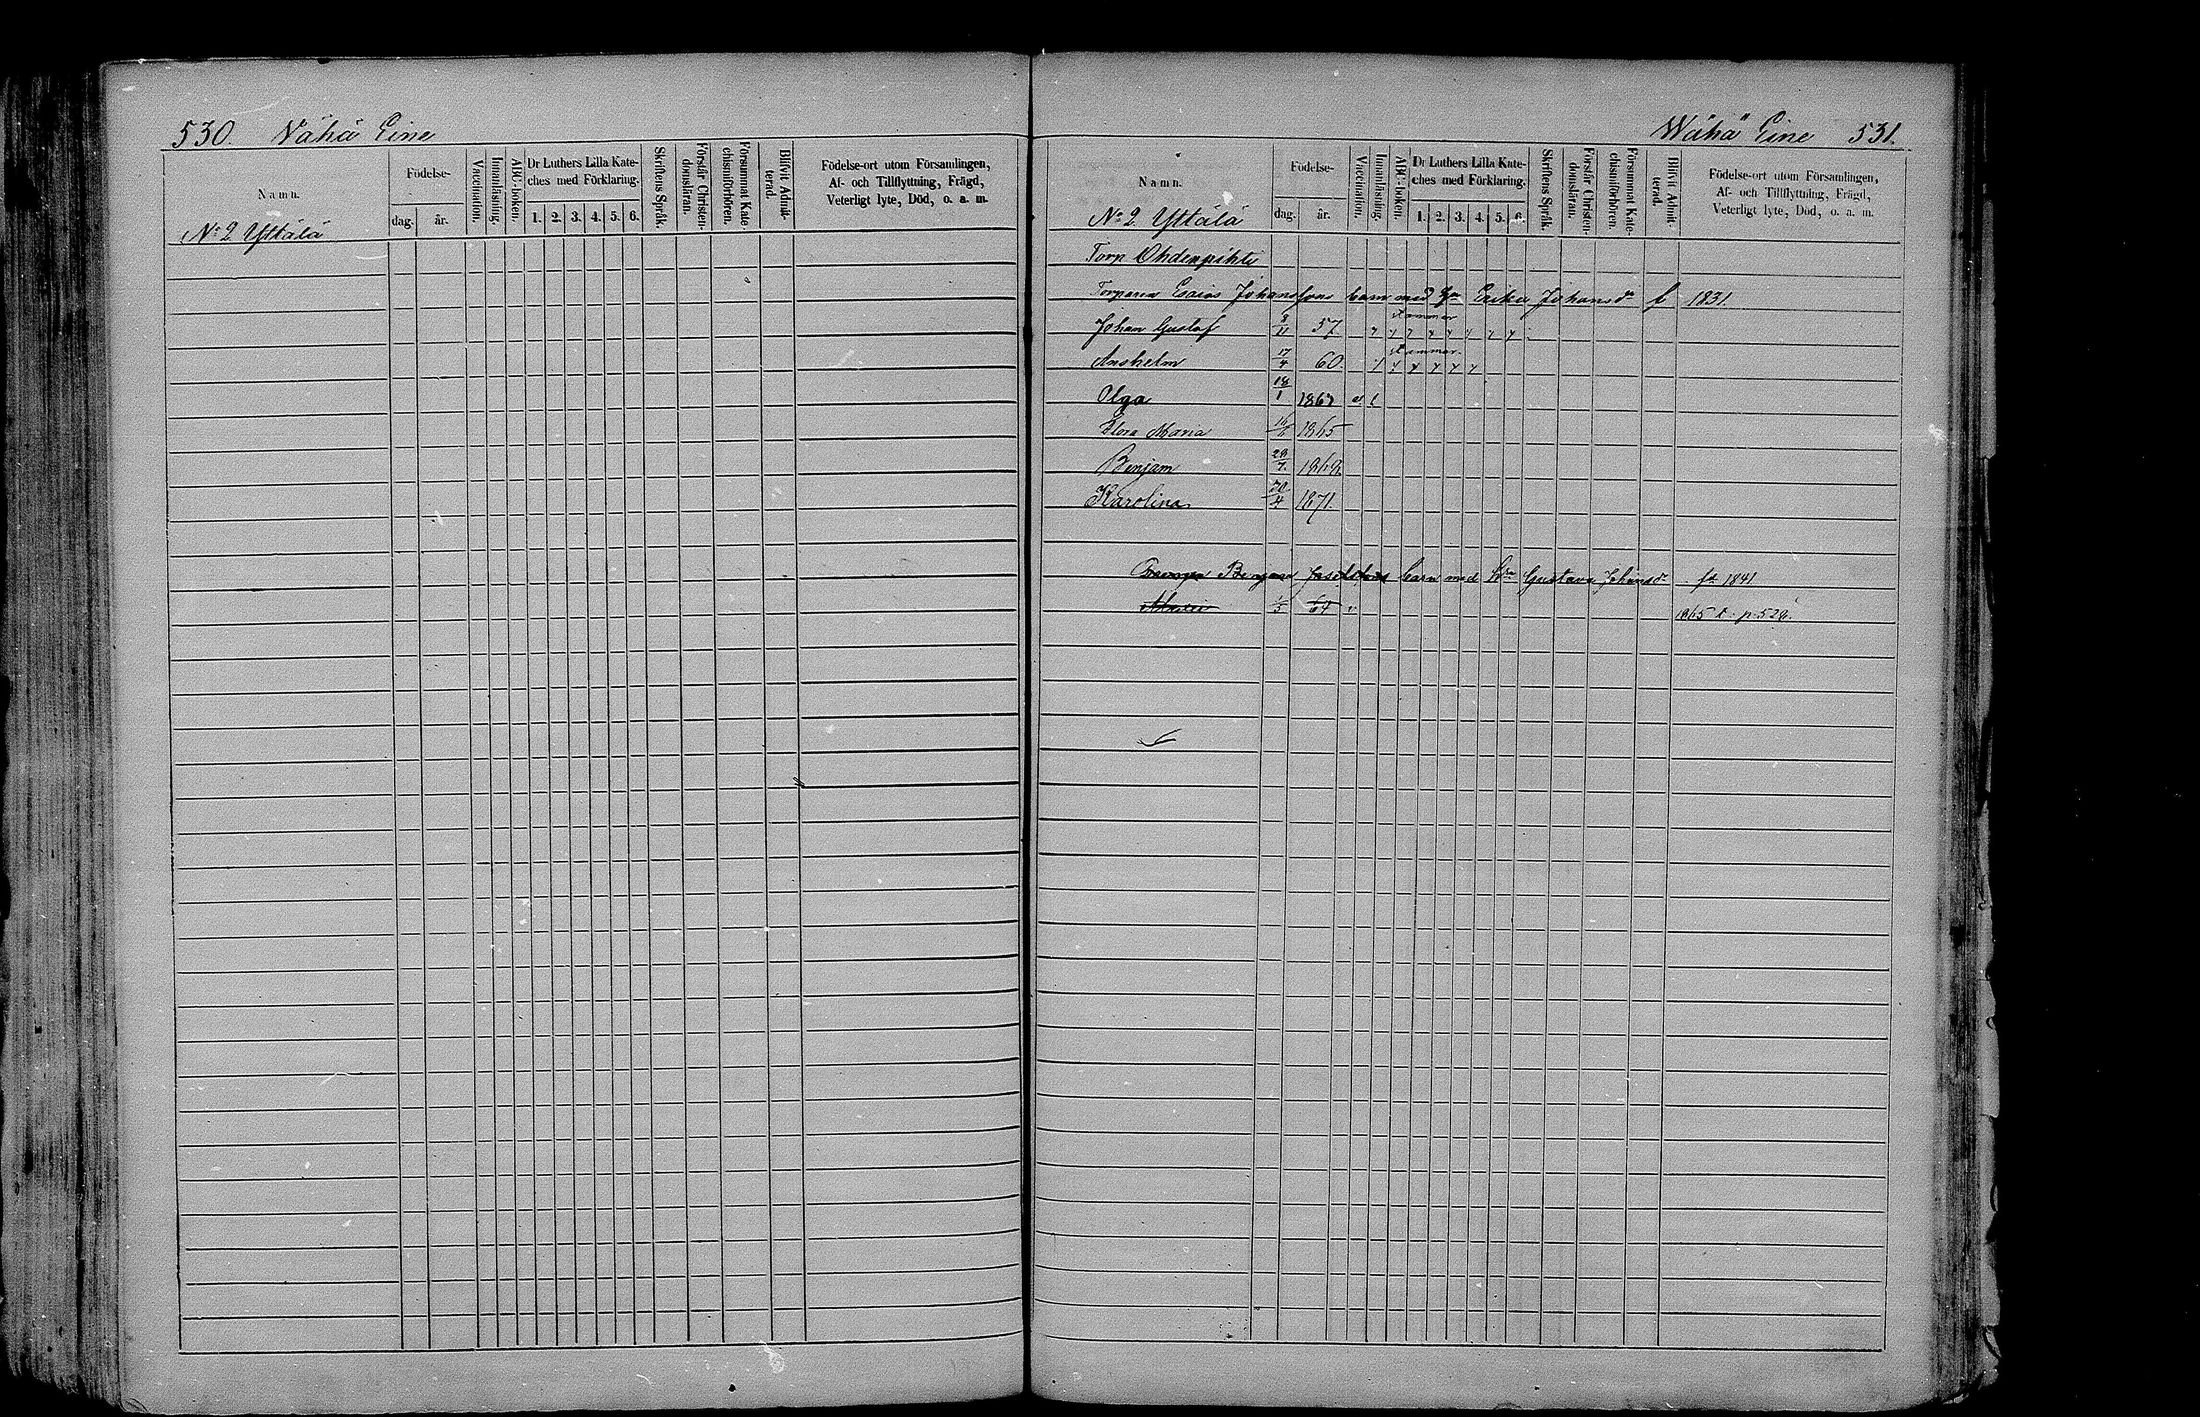 530. Vähä Eine
Namn.
Födelse-
dag. år.
Vaccination.
Innanläsning.
ABC-boken.
Dr Luthers Lilla Kate-
ches med Förklaring.
1. 2. 3. 4. 5. 6.
Skriftens Språk.
Förstår Christen-
domsläran.
Försummat Kate
chismiförhören.
Blifvit Admit-
terad.
Födelse-ort utom Församlingen,
Af- och Tillflyttning, Frägd,
Veterligt lyte, Död, o. a. m.
No 2 Yttälä
Wähä Eine 531.
Namn.
Födelse-
dag. år.
Vaccination.
Innanläsning.
ABC-boken.
Dr Luthers Lilla Kate-
ches med Förklaring.
1. 2. 3. 4. 5. 6.
Skriftens Språk.
Förstår Christen-
domsläran.
Försummat Kate-
chismiförhören.
Blifvit Admit-
terad.
Födelse-ort utom Församlingen,
Af- och Tillflyttning, Frägd,
Veterligt lyte, Död, o. a. m.
No 2 Yttälä
Torp Ohdenpihti
Torparen Esaias Johanssons barn med Erika Johansdr f 1831
stammar
Johan Gustaf 8/11 57
stammar
Anshelm 17/4 60
Olga 18/1 1863 v
Flora Maria 1865
Benjam 29/7 1868
Karolina 20/4 1871.
Benjam barn med Gustava Johansdr fd 1841
1/5 64 v 1865 t. p. 528